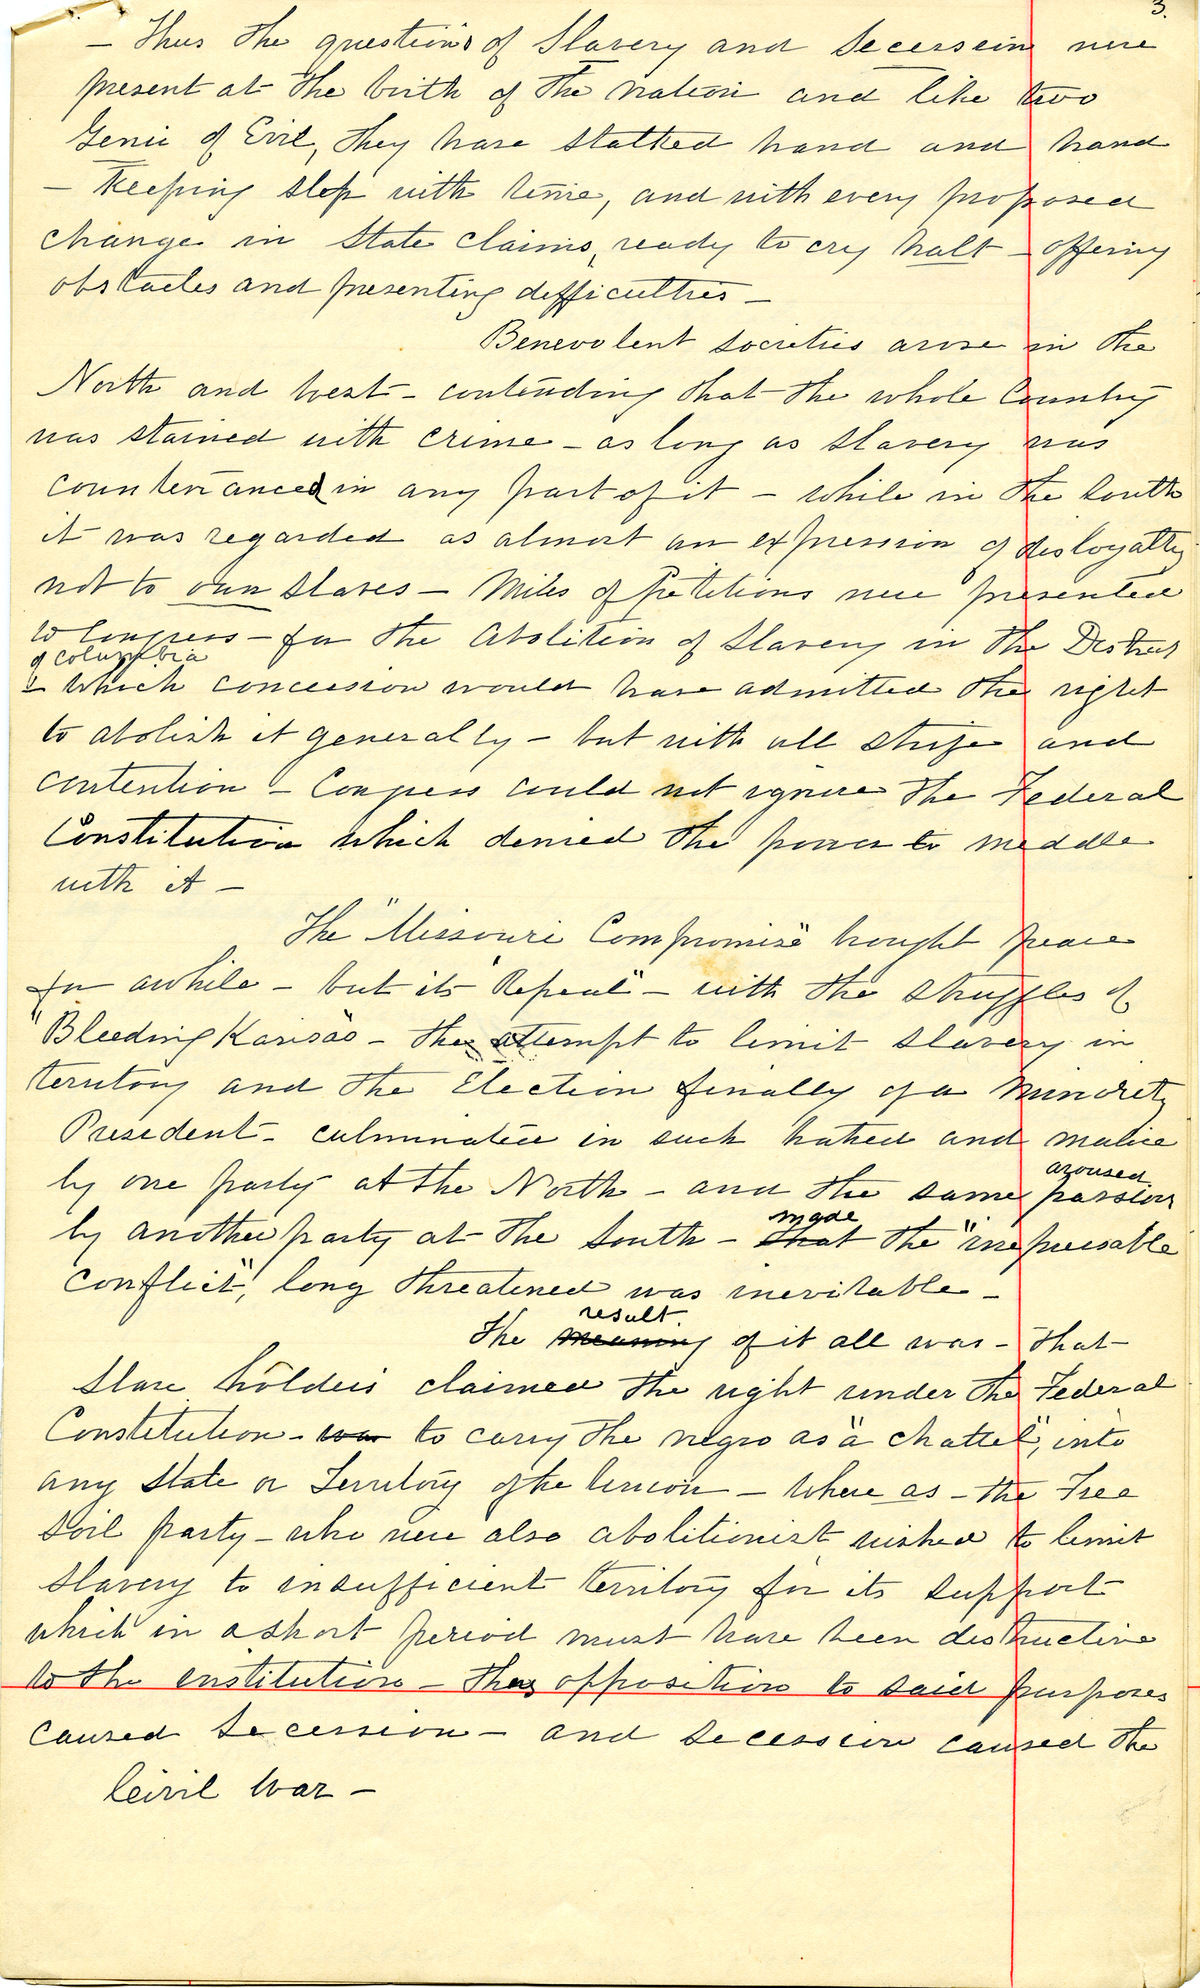 3.
– Thus the questions of Slavery and Secession were
present at the birth of the nation and like two
Genii of Evil, they have stalked hand and hand
– Keeping step with time, and with every proposed
change in State claims, ready to cry halt – offering
obstacles and presenting difficulties –
Benevolent societies arose in the
North and West – contending that the whole Country
was stained with crime – as long as slavery was
countenanced in any part of it – while in the South
it was regarded as almost an expression of disloyalty
not to own slaves – Miles of Petitions were presented
to Congress – for the Abolition of Slavery in the District
of Columbia
– which concession would have admitted the right
to abolish it generally – but with all strife and
contention – Congress could not ignore the Federal
Constitution which denied the power to meddle
with it –
The "Missouri Compromise" brought peace
for awhile – but its "Repeal" – with the struggles of
"Bleeding Kansas" – the attempt to limit slavery in
territory and the Election finally of a Minority
President – culminated in such hatred and malice
by one party at the North – and the same passion
aroused
by another party at the South – that the "irrepressible
made
conflict", long threatened was inevitable –
The meaning of it all was – that
result.
Slave holders claimed the right under the Federal
Constitution – was to carry the negro as "a chattel", into
any State or Territory of the Union – Where as – the Free
Soil party – who were also abolitionist wished to limit
slavery to insufficient territory for its support
which in a short period must have been destructive
to the institution – The opposition to said purposes
caused Secession – and Secession caused the
Civil War –